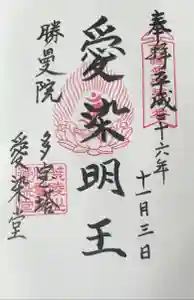 奉拝 平成二十六年
十一月三日
愛染明王
勝鬘院
多宝塔
愛染堂